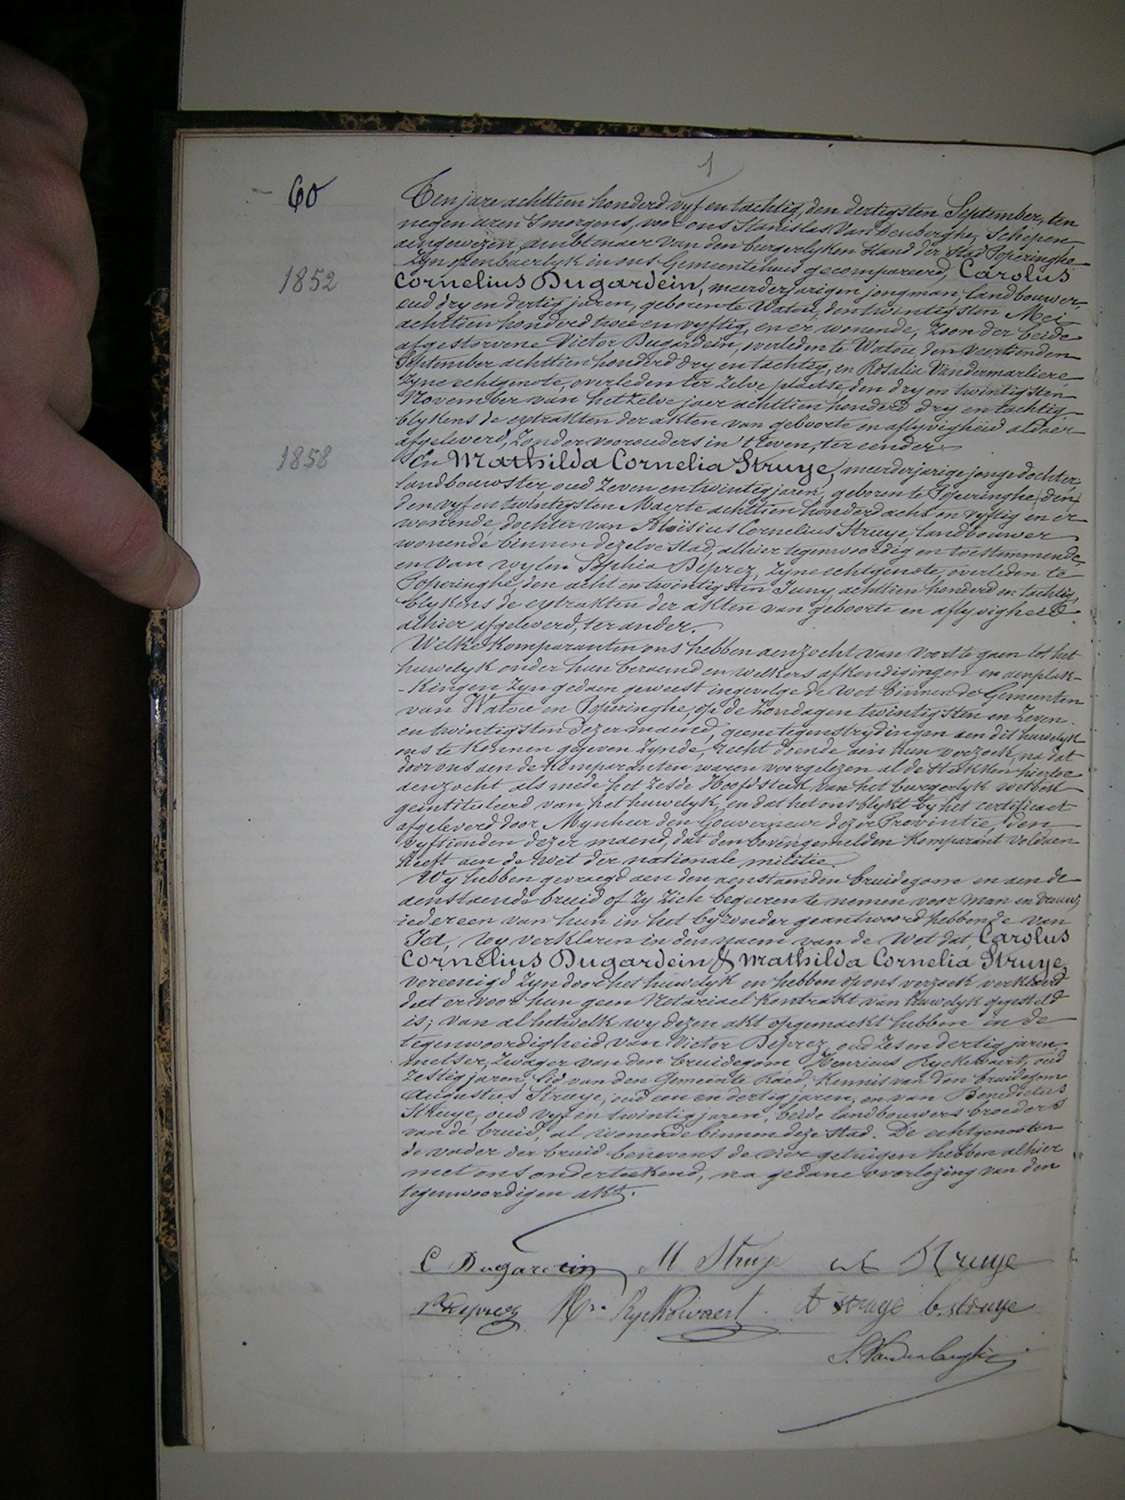 1
60
Ten jare achttien honderd vyf en tachtig, den dertigsten September, ten
negen uren 's morgens, voor ons Stanislas Van Denberghe, Schepen
aengewezen ambtenaer van den burgerlyken Stand der Stad Poperinghe
zyn openbaerlyk in ons Gemeentehuis gecompareerd, Carolus
1852
Cornelius Dugardein, meerderjarigen jongman, landbouwer,
oud dry en dertig jaren, geboren te Watou, den twintigsten Mei
achttien honderd twee en vyftig, en er wonende, Zoon der beide
afgestorvene Victor Dugardein, overleden te Watou den veertienden
September achttien honderd dry en tachtig, en Rosalia Vandermarliere
zyne echtgenote, overleden ter zelve plaetse, den dry en twintigsten
November van het zelve jaer achttien honderd dry en tachtig
blykens de extrakten der akten van geboorte en aflyvigheid aldaer
afgeleverd, zonder voorouders in 't leven, ter eender
1858
En Mathilda Cornelia Struye, meerderjarige jonge dochter,
landbouwster oud zeven en twintig jaren, geboren te Poperinghe, den
den vyf en twintigsten Maerte achttien honderd acht en vyftig en er
wonende dochter van Aloisius Cornelius Struye, landbouwer
wonende binnen dezelve stad, alhier tegenwoordig en toestemmende,
en van wylen Sophia Deprez, zyne echtgenote, overleden te
Poperinghe, den acht en twintigsten Juny achttien honderd en tachtig,
blykens de extrakten der akten van geboorte en aflyvigheid
alhier afgeleverd, ter ander.
Welke Komparanten ons hebben aenzocht van voort te gaen tot het
huwelyk onder hun beraemd en welkers afkondigingen en aenplak-
-kingen zyn gedaen geweest ingevolge de wet binnen de Gemeenten
van Watou en Poperinghe, op de Zondagen twintigsten en zeven-
en twintigsten dezer maend, geene tegenstrydingen aen dit huwelyk
ons te kennen gegeven zynde, recht doende aen hun verzoek, na dat
door ons aen de Komparanten waren voorgelezen al de stukken hiertoe
aenzocht als mede het zesde Hoofdstuk van het burgerlyk wetboek
geintituleerd van het huwelyk, en dat het ons blykt by het certificaet
afgeleverd door Mynheer den Gouverneur dezer Provintie, den
vyftienden dezer maend, dat den bovengemelden Komparant voldaen
heeft aen de wet der nationale militie.
Wy hebben gevraegd aen den aenstaenden bruidegom en aen de
aenstaende bruid of zy zich begeeren te nemen voor man en vrouw,
iedereen van hun in het byzonder geantwoord hebbende van
Ja, wy verklaren in den naem van de wet dat, Carolus
Cornelius Dugardein & Mathilda Cornelia Struye,
vereenigd zyn door het huwelyk en hebben op ons verzoek verklaerd
dat er voor hun geen Notariael Kontrakt van huwelyk opgesteld
is; van al hetwelk wy dezen akt opgemaekt hebben in de
tegenwoordigheid van Victor Deprez, oud zes en dertig jaren,
metser, zwager van den bruidegom Henricus Ryckewaert, oud
zestig jaren, lid van den Gemeente Raed, kennis van den bruidegom
Augustus Struye, oud een en dertig jaren, en van Benedictus
Struye, oud vyf en twintig jaren, beide landbouwers broeders
van de bruid, al wonende binnen deze Stad. De echtgenooten
de vader der bruid benevens de vier getuigen hebben alhier
met ons onderteekend, na gedane voorlezing van den
tegenwoordigen akt.
C Dugardein M Struye Struye
V Deprez Hri Ryckewaert A Struye b. struye
S. Vandenberghe